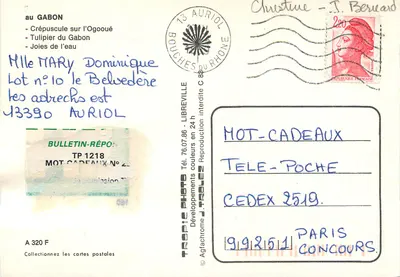 au GABON
- Crépuscule sur l'Ogooué
- Tulipier du Gabon
- Joies de l'eau
Mlle MARY Dominique
Lot n°10 le Belvedère
les adrechs est
13390 AURIOL
BULLETIN-RÉPO
TP 1218
MOT-CADEAUX N°
A 320 F
Collectionnez les cartes postales
13 AURIOL
BOUCHES DU RHONE
Christine - J. Bernard
2,20
TROPIC PHOTO Tél. 76.07.86 - LIBREVILLE
Développements couleurs en 24 h
© Aglachrome J. TROLEZ Reproduction interdite C 89
MOT-CADEAUX
TELE-POCHE
CEDEX 2519.
PARIS
19925 11 CONCOURS.